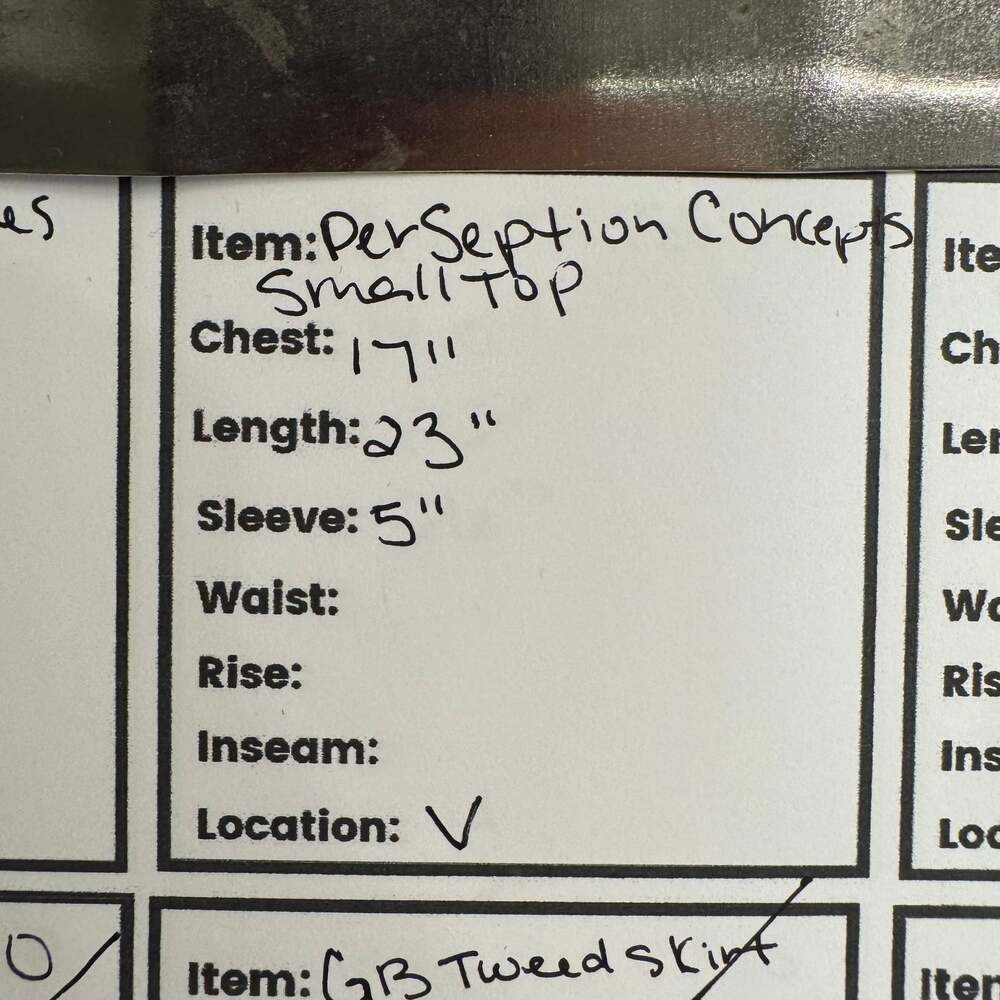 es
Item: PerSeption Concepts
Small Top
Chest: 17"
Length: 23"
Sleeve: 5"
Waist:
Rise:
Inseam:
Location: V
Ite
Ch
Len
Sle
Wa
Ris
Ins
Loc
0
Item: GB Tweed Skirt
Item